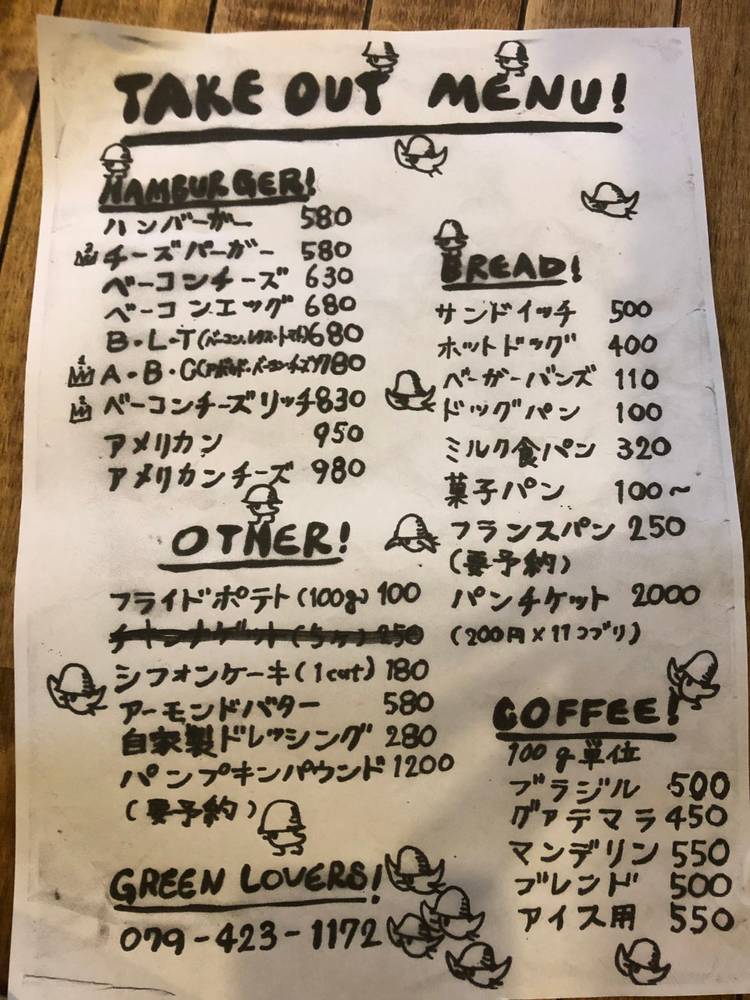 TAKE OUT MENU!
HAMBURGER!
ハンバーガー 580
チーズバーガー 580
ベーコンチーズ 630
ベーコンエッグ 680
B・L・T(ベーコン・レタス・トマト) 680
A・B・C(アボカド・ベーコン・チーズ) 780
ベーコンチーズリッチ 830
アメリカン 950
アメリカンチーズ 980
OTHER!
フライドポテト(100g) 100
チキンナゲット(5ヶ) 250
シフォンケーキ(1cut) 180
アーモンドバター 580
自家製ドレッシング 280
パンプキンパウンド 1200
(要予約)
GREEN LOVERS!
079-423-1172
BREAD!
サンドイッチ 500
ホットドッグ 400
バーガーバンズ 110
ドッグパン 100
ミルク食パン 320
菓子パン 100~
フランスパン 250
(要予約)
パンチケット 2000
(200円×11コブリ)
COFFEE!
100g単位
ブラジル 500
グァテマラ 450
マンデリン 550
ブレンド 500
アイス用 550